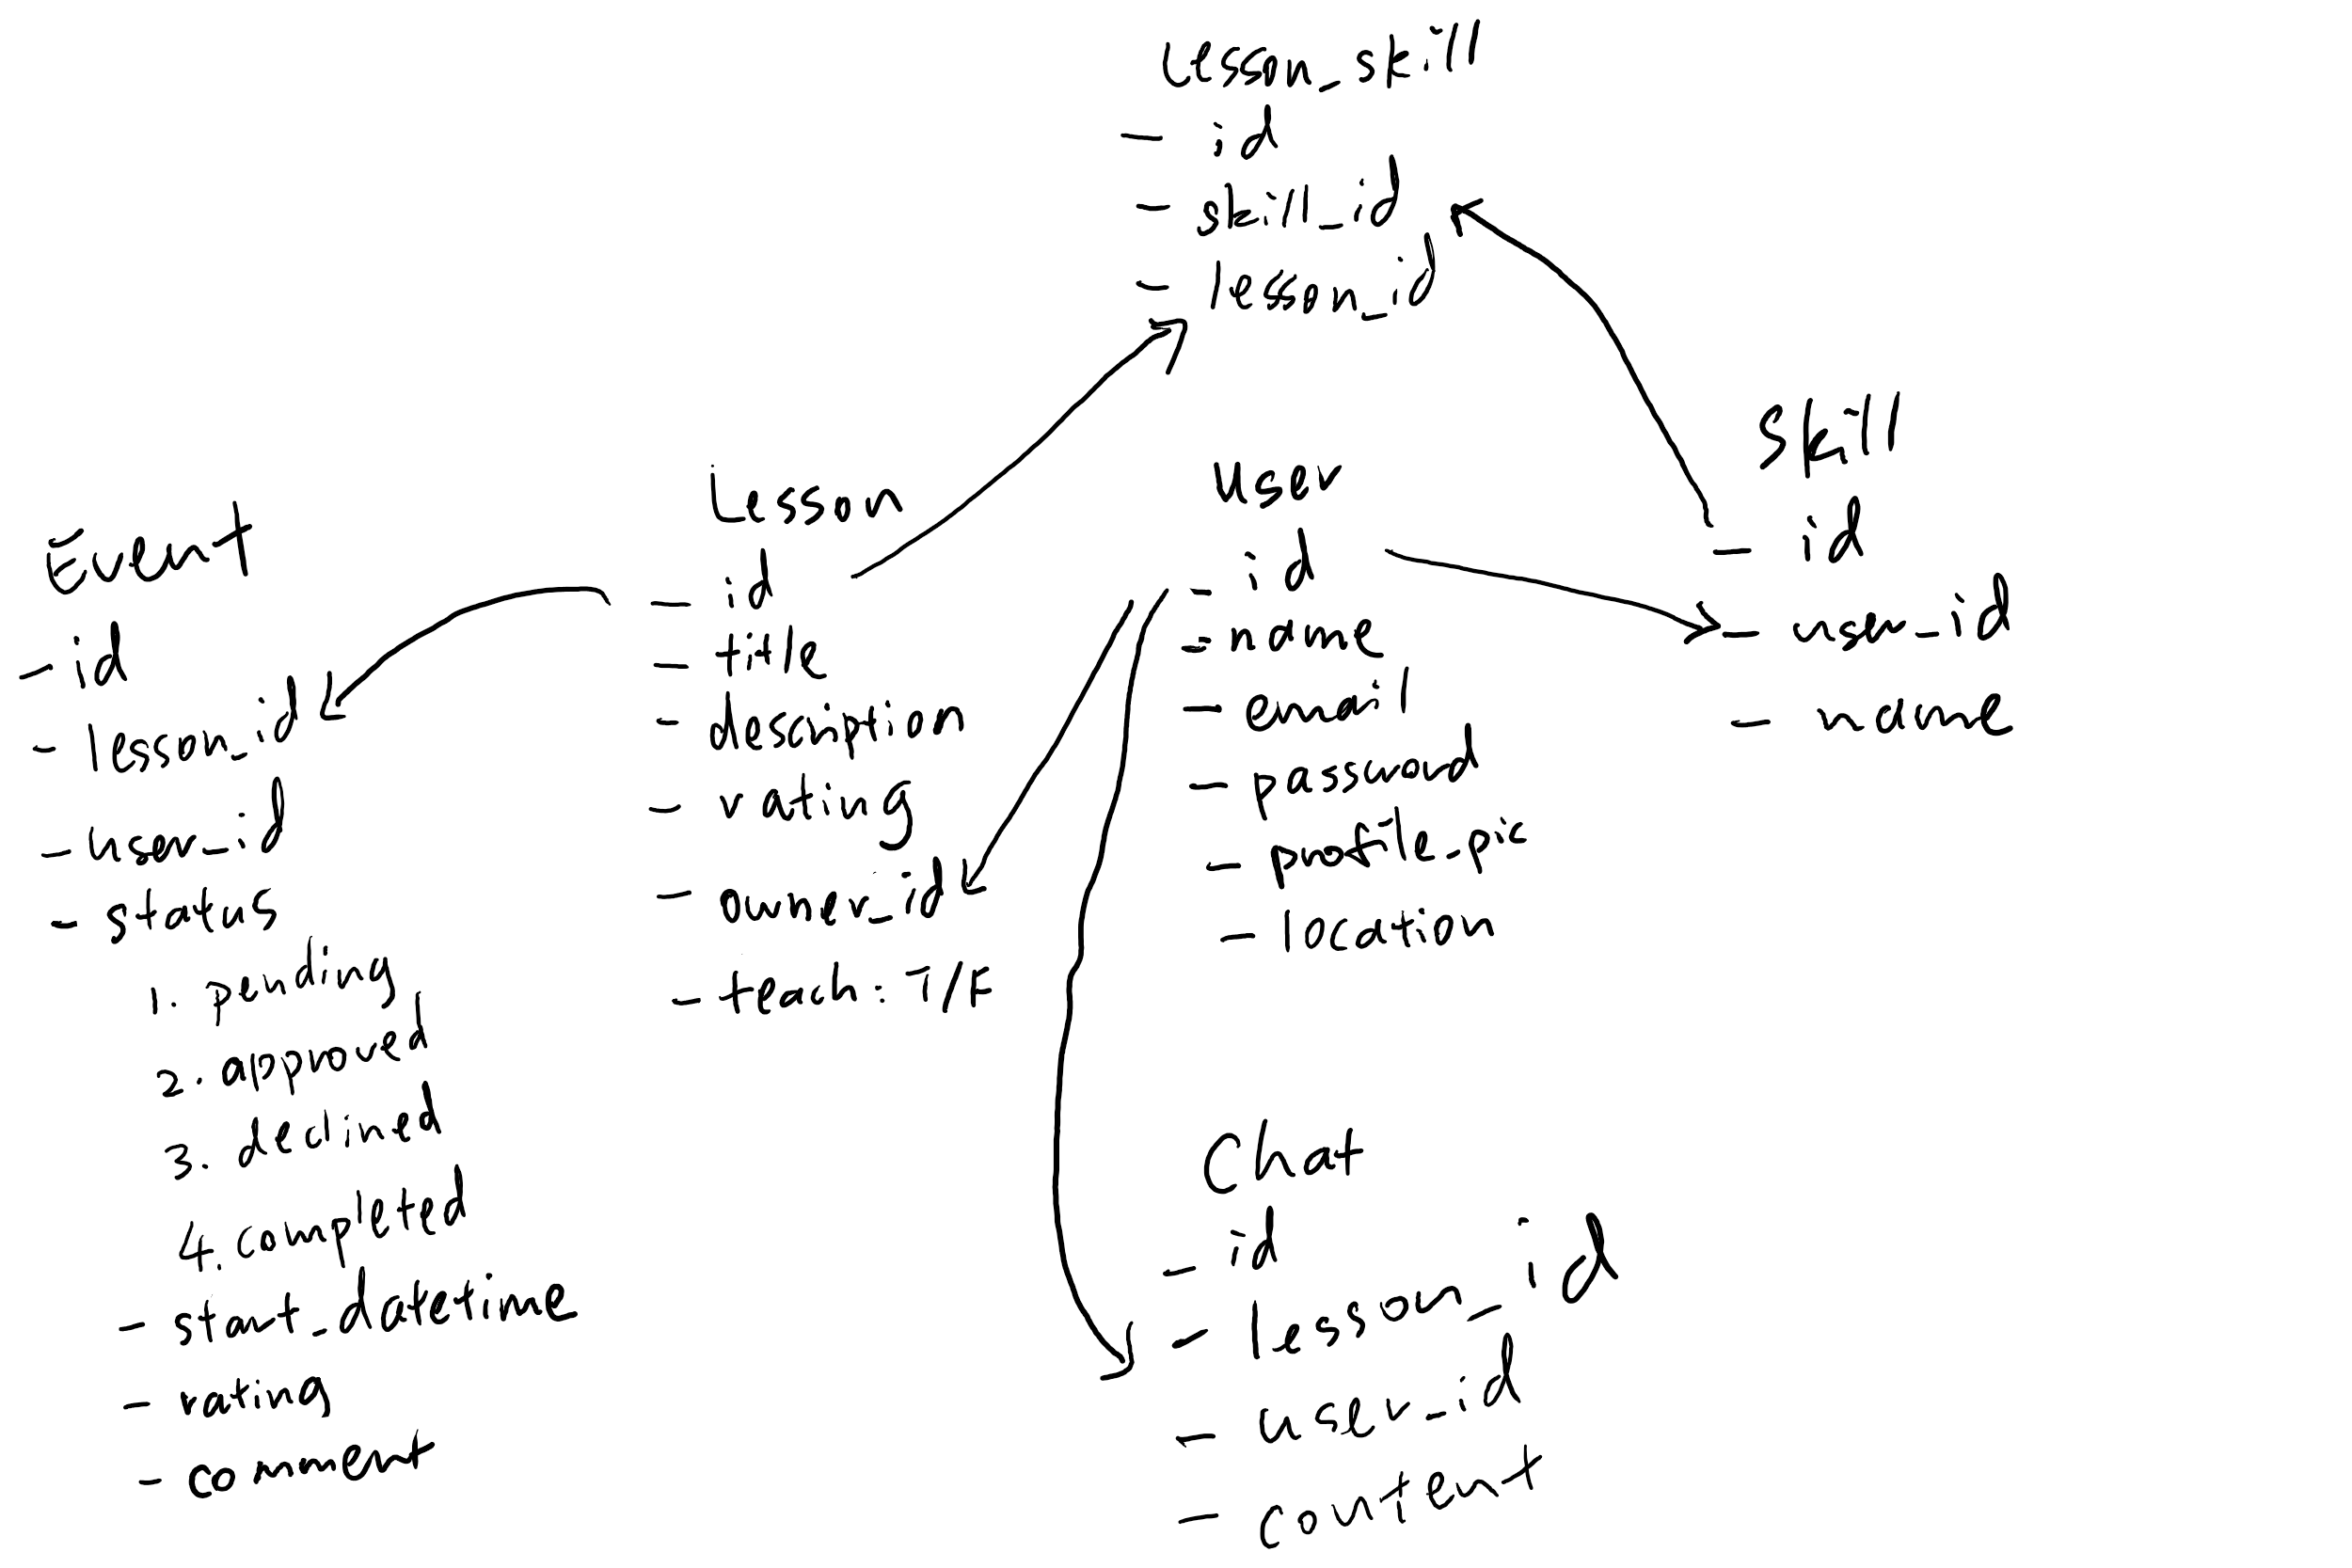 Lesson_skill
- id
- skill_id
- lesson_id
Event
- id
- lesson_id
- user_id
- status
1. pending
2. approved
3. declined
4. completed
- start_datetime
- rating
- comment
Lesson
- id
- title
- description
- rating
- owner_id
- teach: T/F
User
- id
- name
- email
- password
- profile_pic
- location
Skill
- id
- user_id
- name
Chat
- id
- lesson_id
- user_id
- content